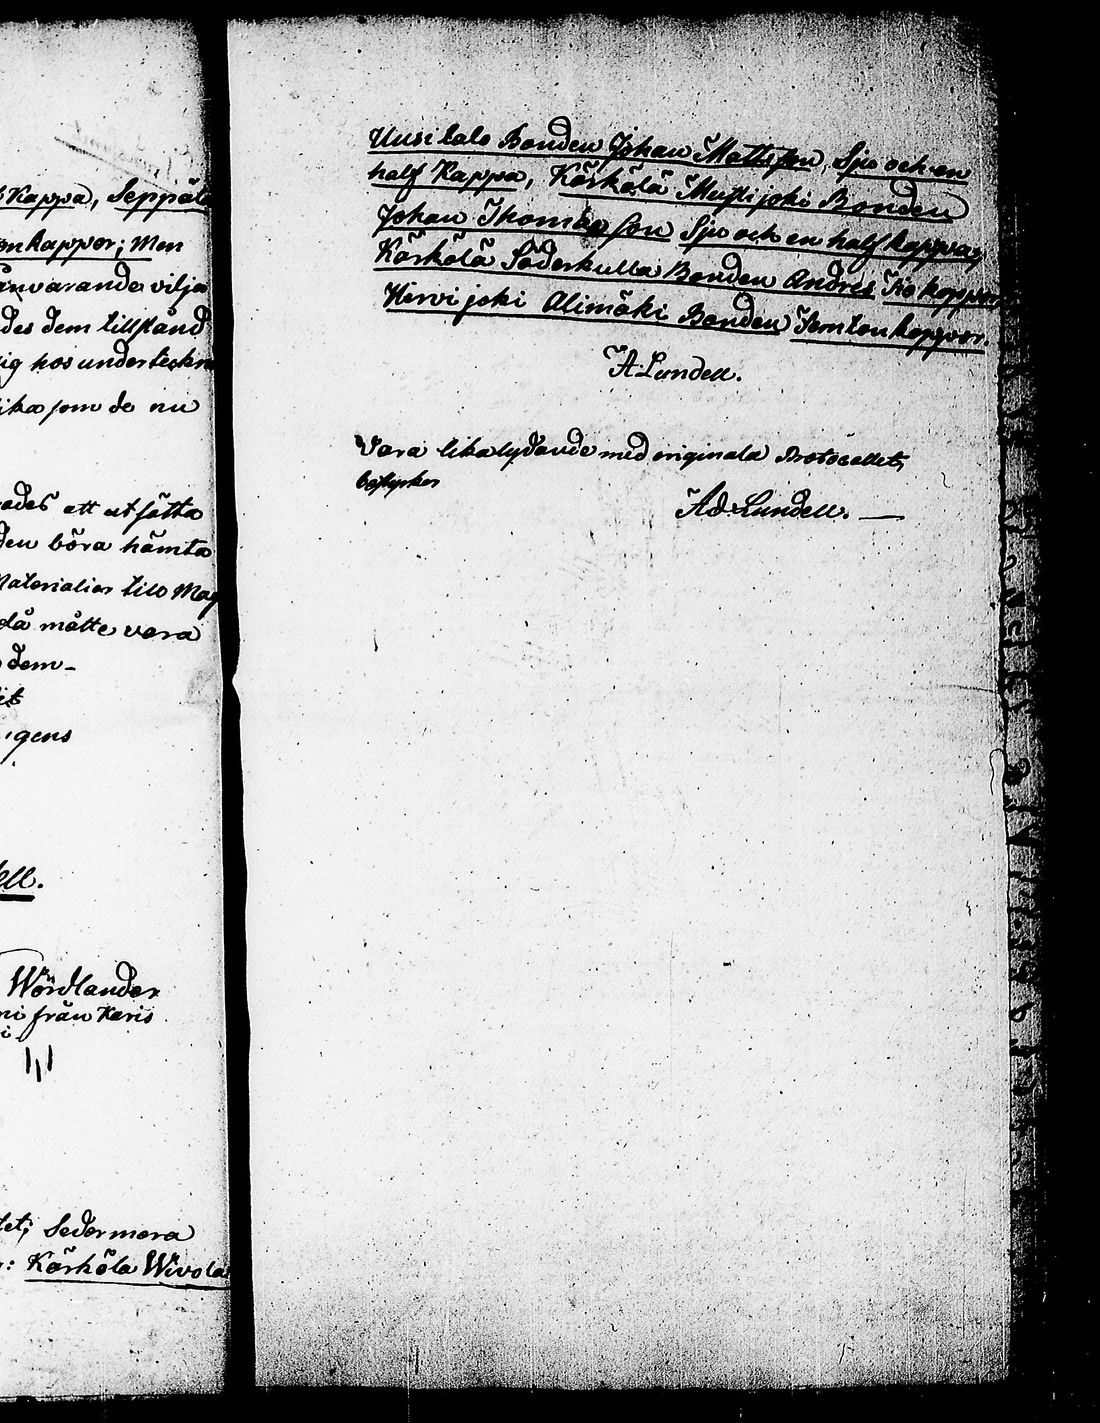 Kappa, Seppälä
onkappor; Men
närvarande vilja
des dem tillstånd
sig hos underteckn
lika som de nu
ades att utsätta
den böra hämta
Materialier till Mag
då måtte vara
dem-
igens
ell.
Wördlander
ni från Karis
tet; Sedermera
: Kärkölä Wivola
Uusitalo Bonden Johan Mattsson, Sju och en
half Kappa, Kärkölä Mustjoki Bonden
Johan Thomasson Sju och en half kappa,
Kärkölä Söderkulla Bonden Andres Tio kappor
Hervijoki Alimäki Bonden Femton kappor.
A Lundell.
Vara lika lydande med originala Protocollet,
bestyrker
Ad Lundell.